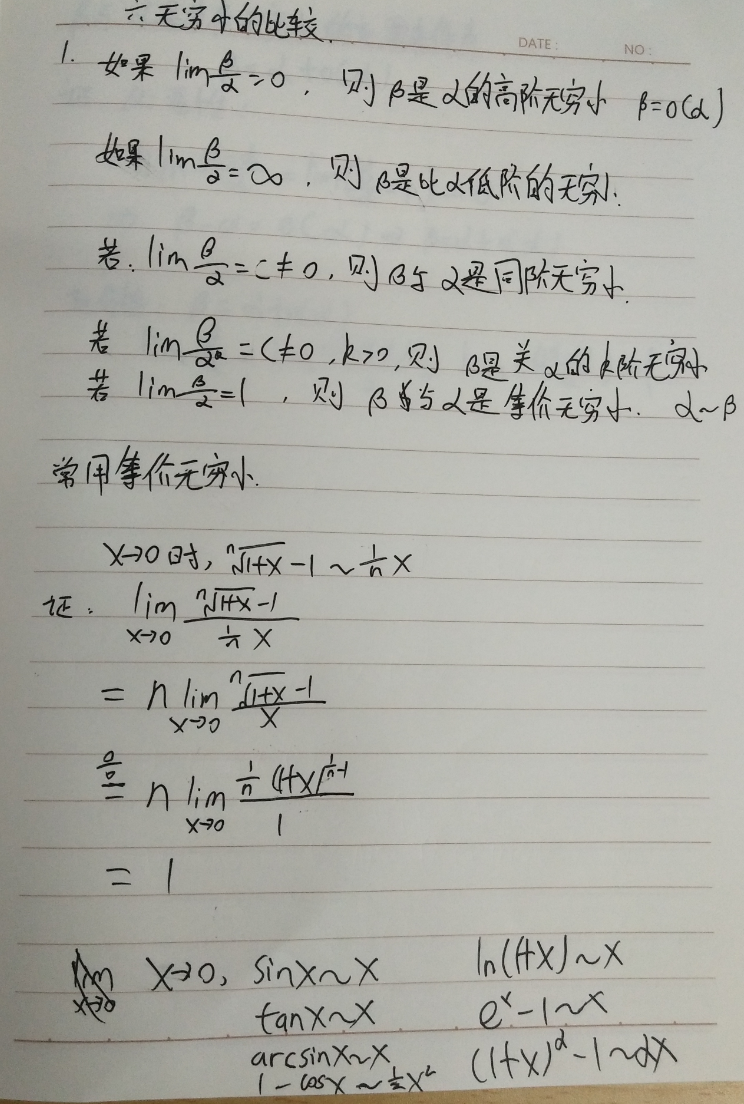 六 无穷小的比较
DATE: NO:
1. 如果 lim β/α = 0, 则 β是α的高阶无穷小 β=o(α)
如果 lim β/α = ∞, 则 β是比α低阶的无穷小.
若. lim β/α = C ≠ 0, 则 β与α是同阶无穷小.
若 lim β/αᵏ = C≠0, k>0, 则 β是关α的k阶无穷小
若 lim β/α = 1, 则 β与α是等价无穷小. α~β
常用等价无穷小.
x→0时, ⁿ√(1+x) -1 ~ 1/n x
证: lim x→0 (ⁿ√(1+x) -1)/(1/n x)
= n lim x→0 (ⁿ√(1+x) -1)/x
0/0 = n lim x→0 (1/n (1+x)^(1/n -1))/1
= 1
x→0, sinx~x ln(1+x)~x
tanx~x eˣ-1~x
arcsinx~x (1+x)^α -1~αx
1-cosx ~ 1/2 x²